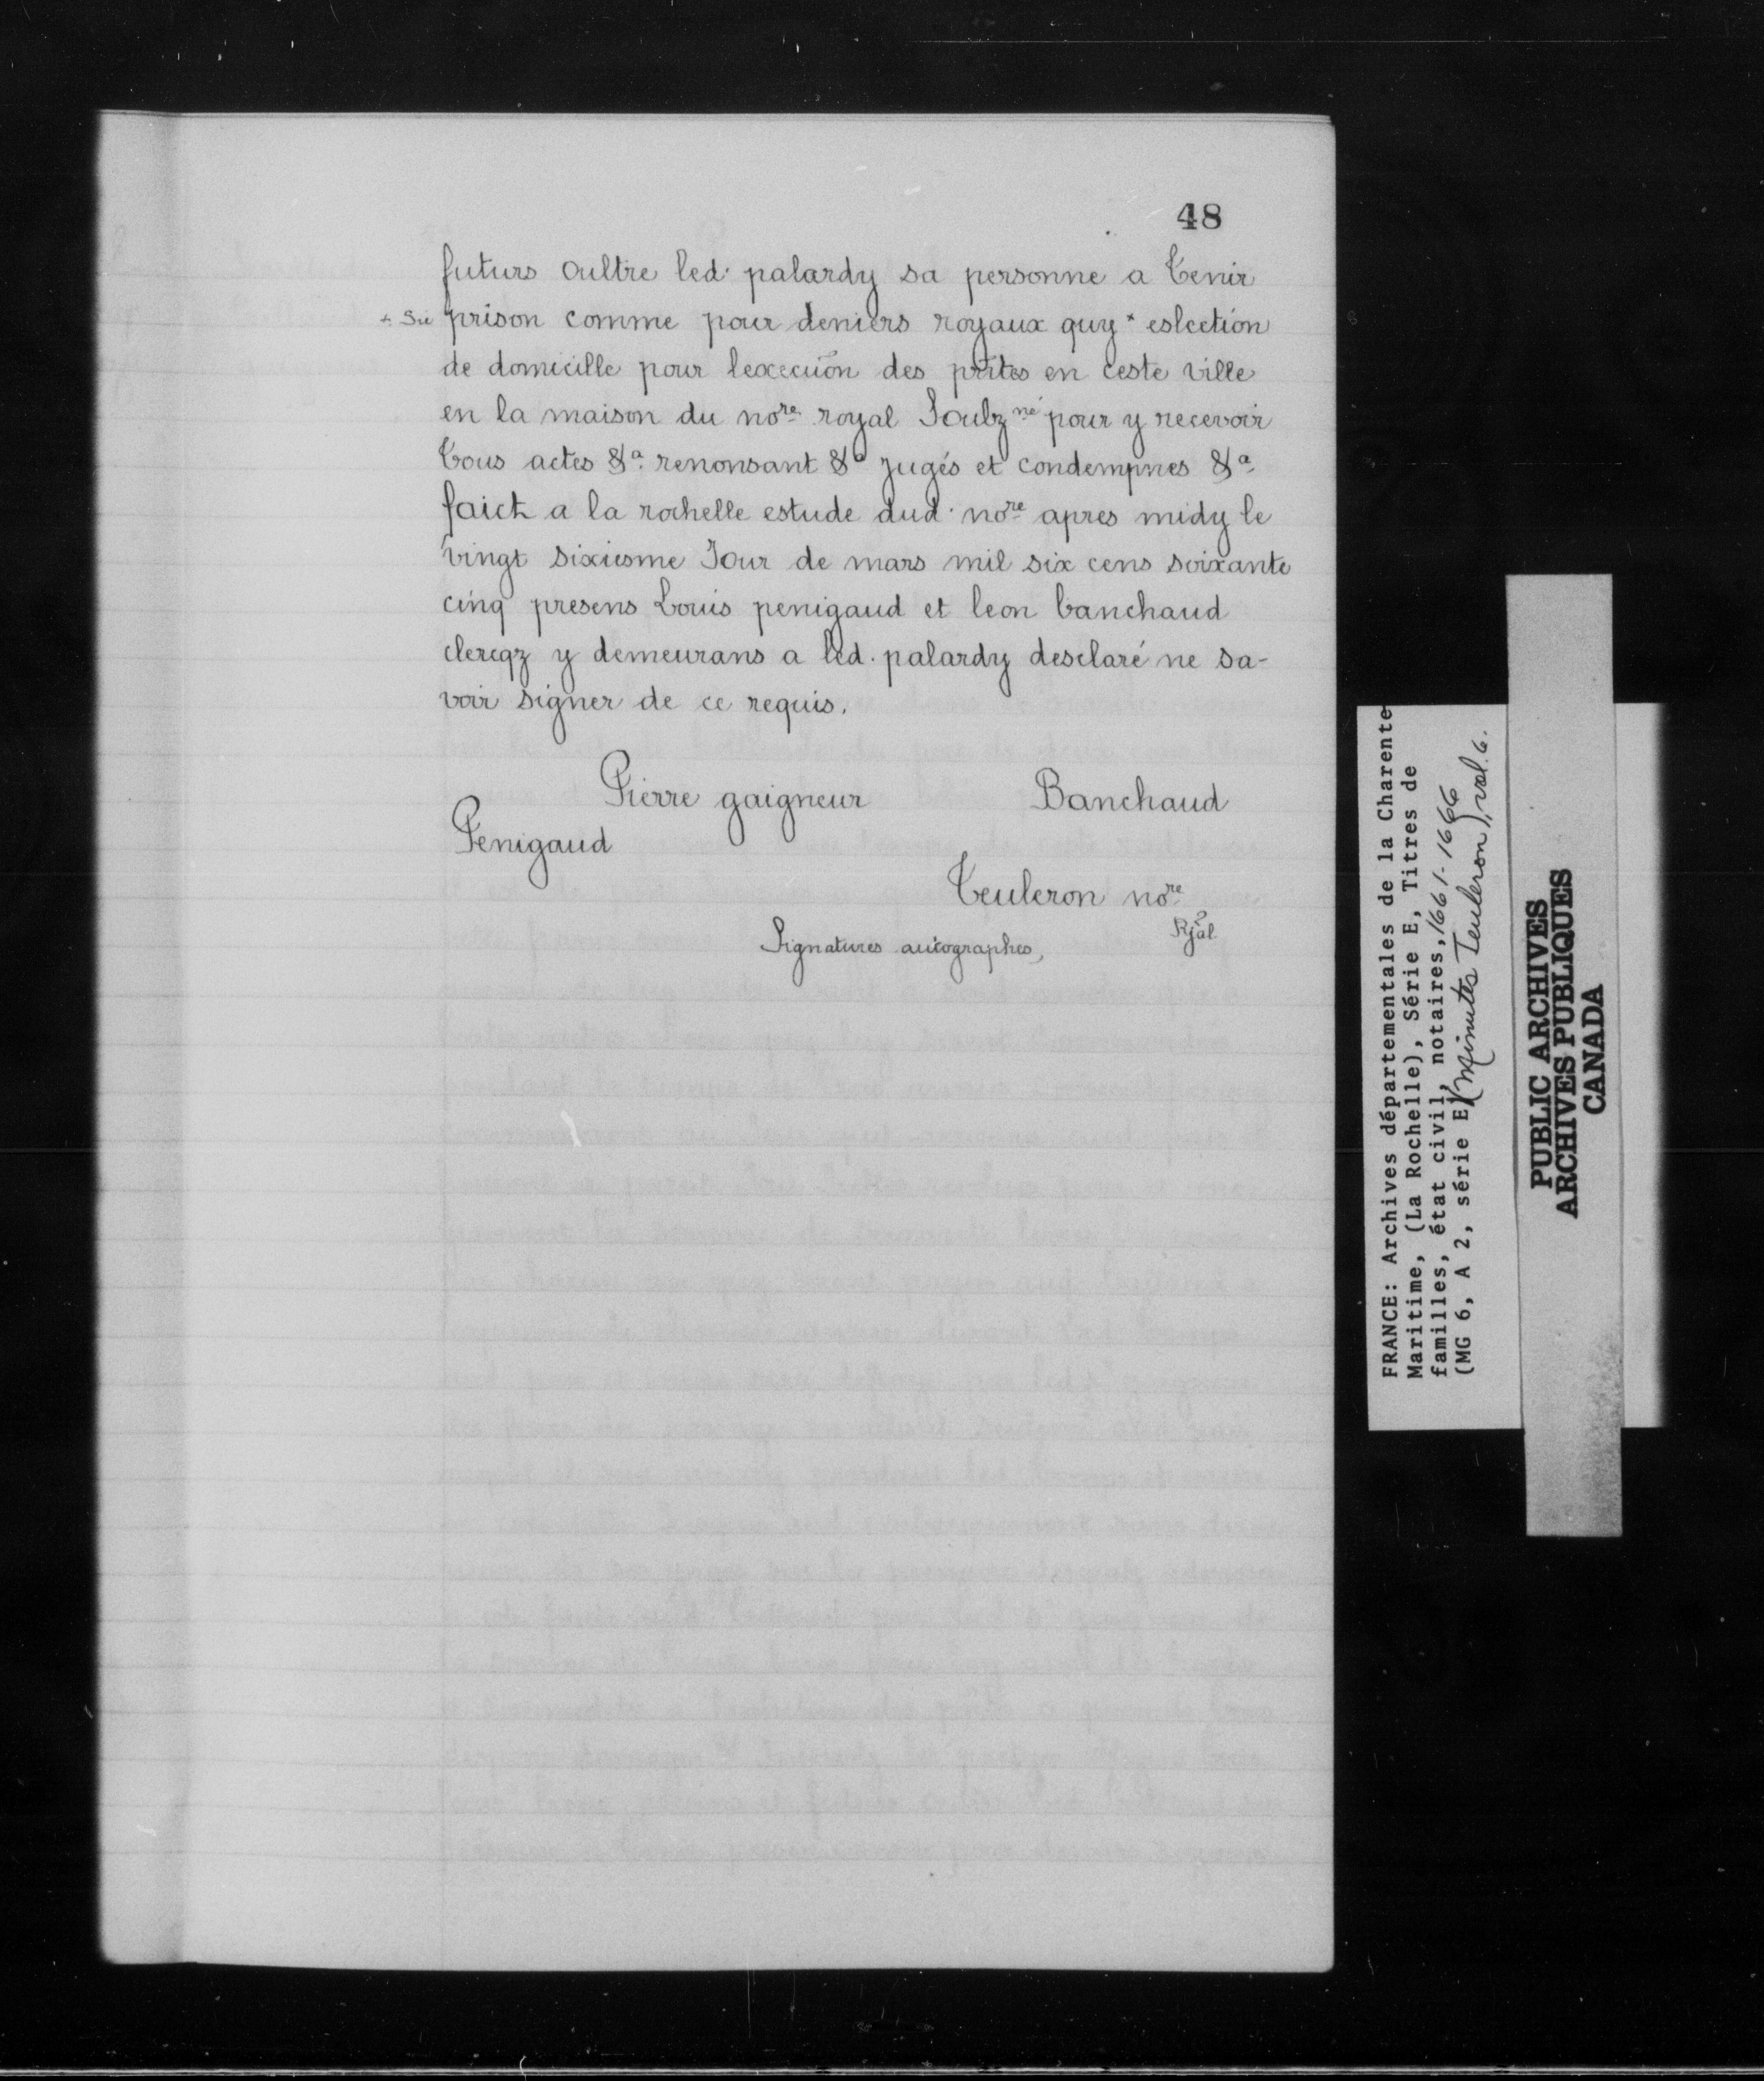 48
futurs oultre led. palardy sa personne a tenir
+ Sic prison comme pour deniers royaux quy * eslection
de domicille pour lexecuõn des pñtes en ceste ville
en la maison du nore royal Soubz né pour y recevoir
tous actes &a. renonsant &a jugés et condempnes &a
faict a la rochelle estude dud. nore apres midy le
vingt sixiesme Jour de mars mil six cens soixante
cinq presens Louis penigaud et leon banchaud
clercqz y demeurans a led. palardy desclaré ne sa-
voir signer de ce requis.
Pierre gaigneur Banchaud
Penigaud
Teuleron nore
Rjal
Signatures autographes,
FRANCE: Archives départementales de la Charente
Maritime, (La Rochelle), Série E, Titres de
familles, état civil, notaires, 1661-1666
(MG 6, A 2, série E) (Minutes Teuleron), vol. 6.
PUBLIC ARCHIVES
ARCHIVES PUBLIQUES
CANADA